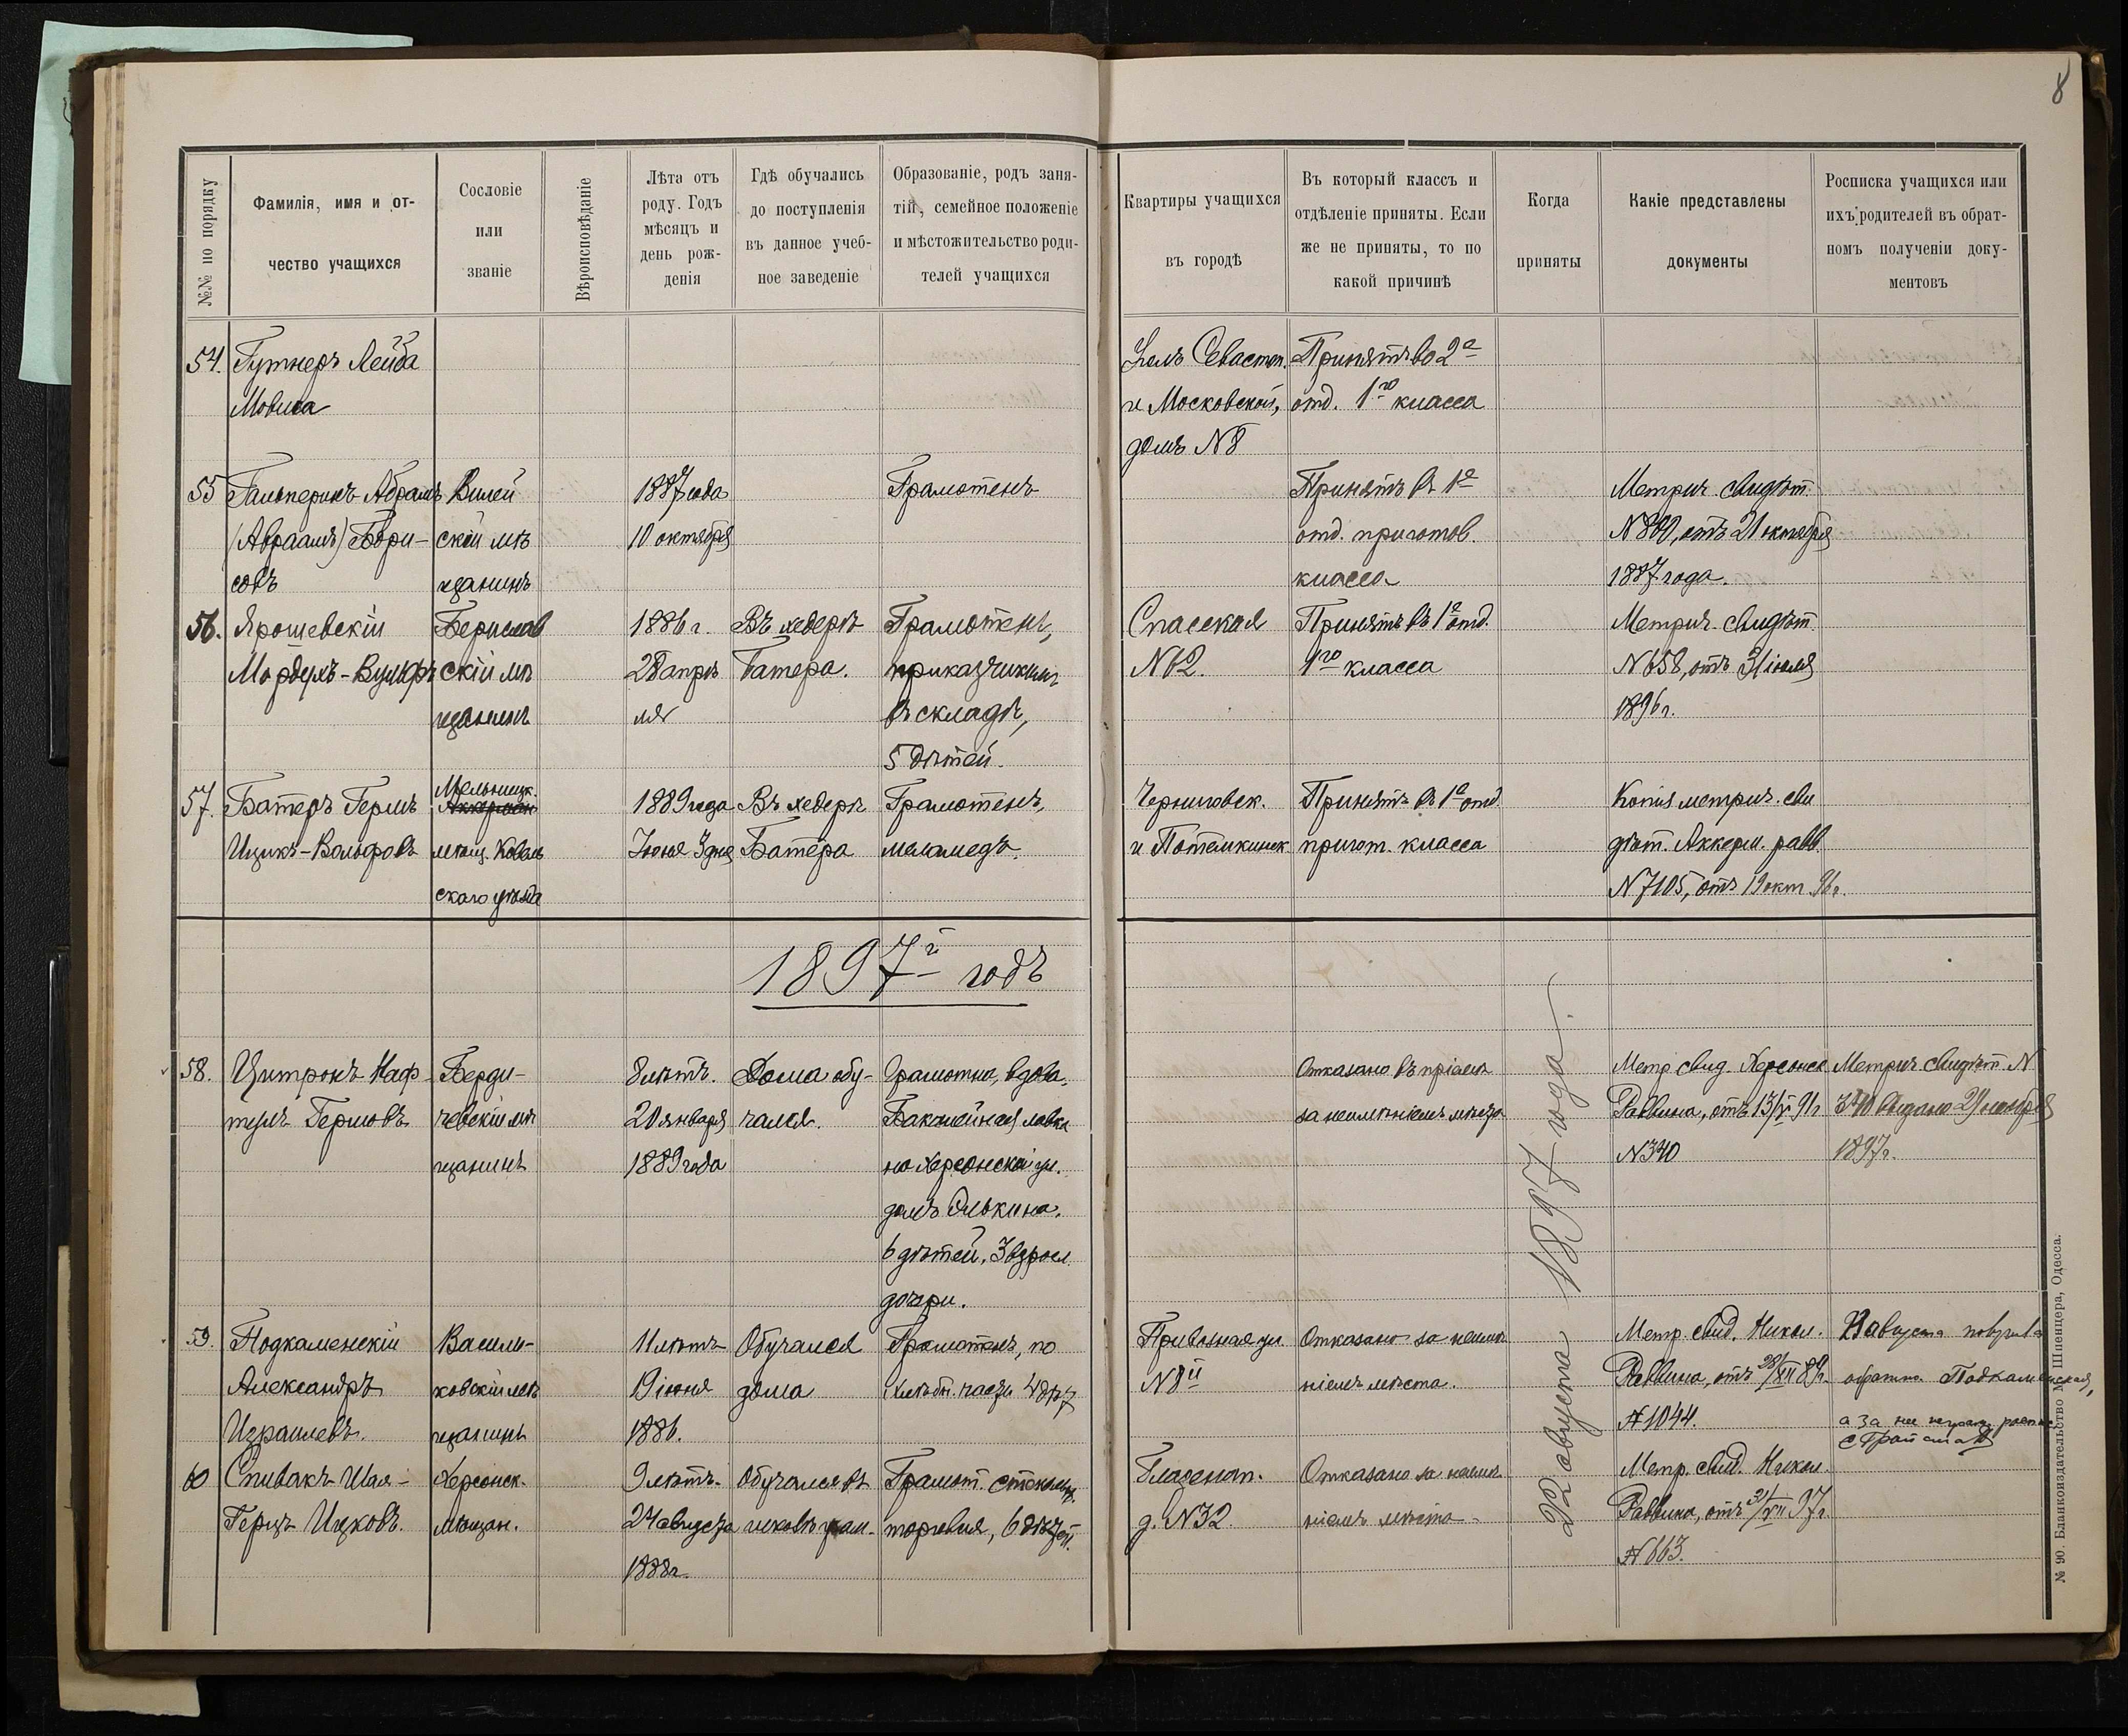 8
№№ по порядку
Фамилія, имя и от-
чество учащихся
Сословіе
или
званіе
Вѣроисповѣданіе
Лѣта отъ
роду. Годъ
мѣсяцъ и
день рож-
денія
Гдѣ обучались
до поступленія
въ данное учеб-
ное заведеніе
Образованіе, родъ заня-
тій, семейное положеніе
и мѣстожительство роди-
телей учащихся
Квартиры учащихся
въ городѣ
Въ который классъ и
отдѣленіе приняты. Если
же не приняты, то по
какой причинѣ
Когда
приняты
Какіе представлены
документы
Росписка учащихся или
ихъ родителей въ обрат-
номъ полученіи доку-
ментовъ
54.
Гутнеръ Лейба
Мовша
Севастоп.
и Московской,
домъ N 8
Принятъ во 2е
отд. 1го класса
55
Гальперинъ Абрамъ
(Авраамъ) Бори-
совъ
Вилей
скій мѣ
щанинъ
1887 года
10 октября
Грамотенъ
Принятъ въ 1е
отд. приготов.
класса
Метрич. свидѣт.
N 800, отъ 21 октября
1887 года.
56.
Ярошевскій
Мордухъ-Вульфъ
Берислав
скій мѣ
щанинъ
1886 г.
28 апрѣ
ля
Въ хедерѣ
Батера.
Грамотенъ,
приказчикомъ
въ складѣ,
5 дѣтей.
Спасская
N 62.
Принятъ въ 1е отд.
1го класса
Метрич. свидѣт.
N 658, отъ 31 іюля
1896 г.
57.
Батеръ Гершъ
Ицикъ-Вольфовъ
Мельницк.
Аккерман
мѣщ. Ковель
скаго уѣзда
1889 года
Іюня 3 дня
Въ хедерѣ
Батера
Грамотенъ,
меламедъ.
Черниговск.
и Потемкинск.
Принятъ въ 1е отд.
пригот. класса
Копія метрич. сви
дѣт. Аккерм. равв.
N 7105, отъ 19 окт. 96 г.
1897й годъ
58.
Цитронъ Наф
тулъ Гершовъ
Берди-
чевскій мѣ
щанинъ
8 лѣтъ.
20 января
1889 года
Дома обу-
чался.
Грамотна, вдова.
Бакалейная лавка
на Херсонской ул.
домъ Олькина.
6 дѣтей, 3 взросл.
дочери.
Отказано въ пріемѣ
за неимѣніемъ мѣста
22 августа 1897 года.
Метр. свид. Херсонск.
Раввина, отъ 13/V 91 г.
N 340
Метрич. свидѣт. N
340 выдано 21 ноября
1897 г.
59.
Подкаменскій
Александръ
Израилевъ.
Васили-
ковскій мѣ
щанинъ
11 лѣтъ
19 іюня
1886.
Обучался
дома
Грамотенъ, по
хлѣбн. части 4 дѣт
Привозная ул.
N 8
Отказано за неимѣ
ніемъ мѣста.
Метр. свид. Никол.
Раввина, отъ 28/XII 89 г.
N 1044.
августа получила
обратно Подкаменская,
а за нее неграм. распис.
60
Спивакъ Шая-
Герцъ Ицковъ.
Херсонск.
мѣщан.
9 лѣтъ.
24 августа
1888 г.
Обучался въ
Грамот.
торговля, 6 дѣтей.
Глазенап.
д. N 32.
Отказано за неимѣ
ніемъ мѣста.
Метр. свид. Никол.
Раввина, отъ 31/VII 97 г.
N 663.
№ 90. Бланкоиздательство М. Шпенцера, Одесса.